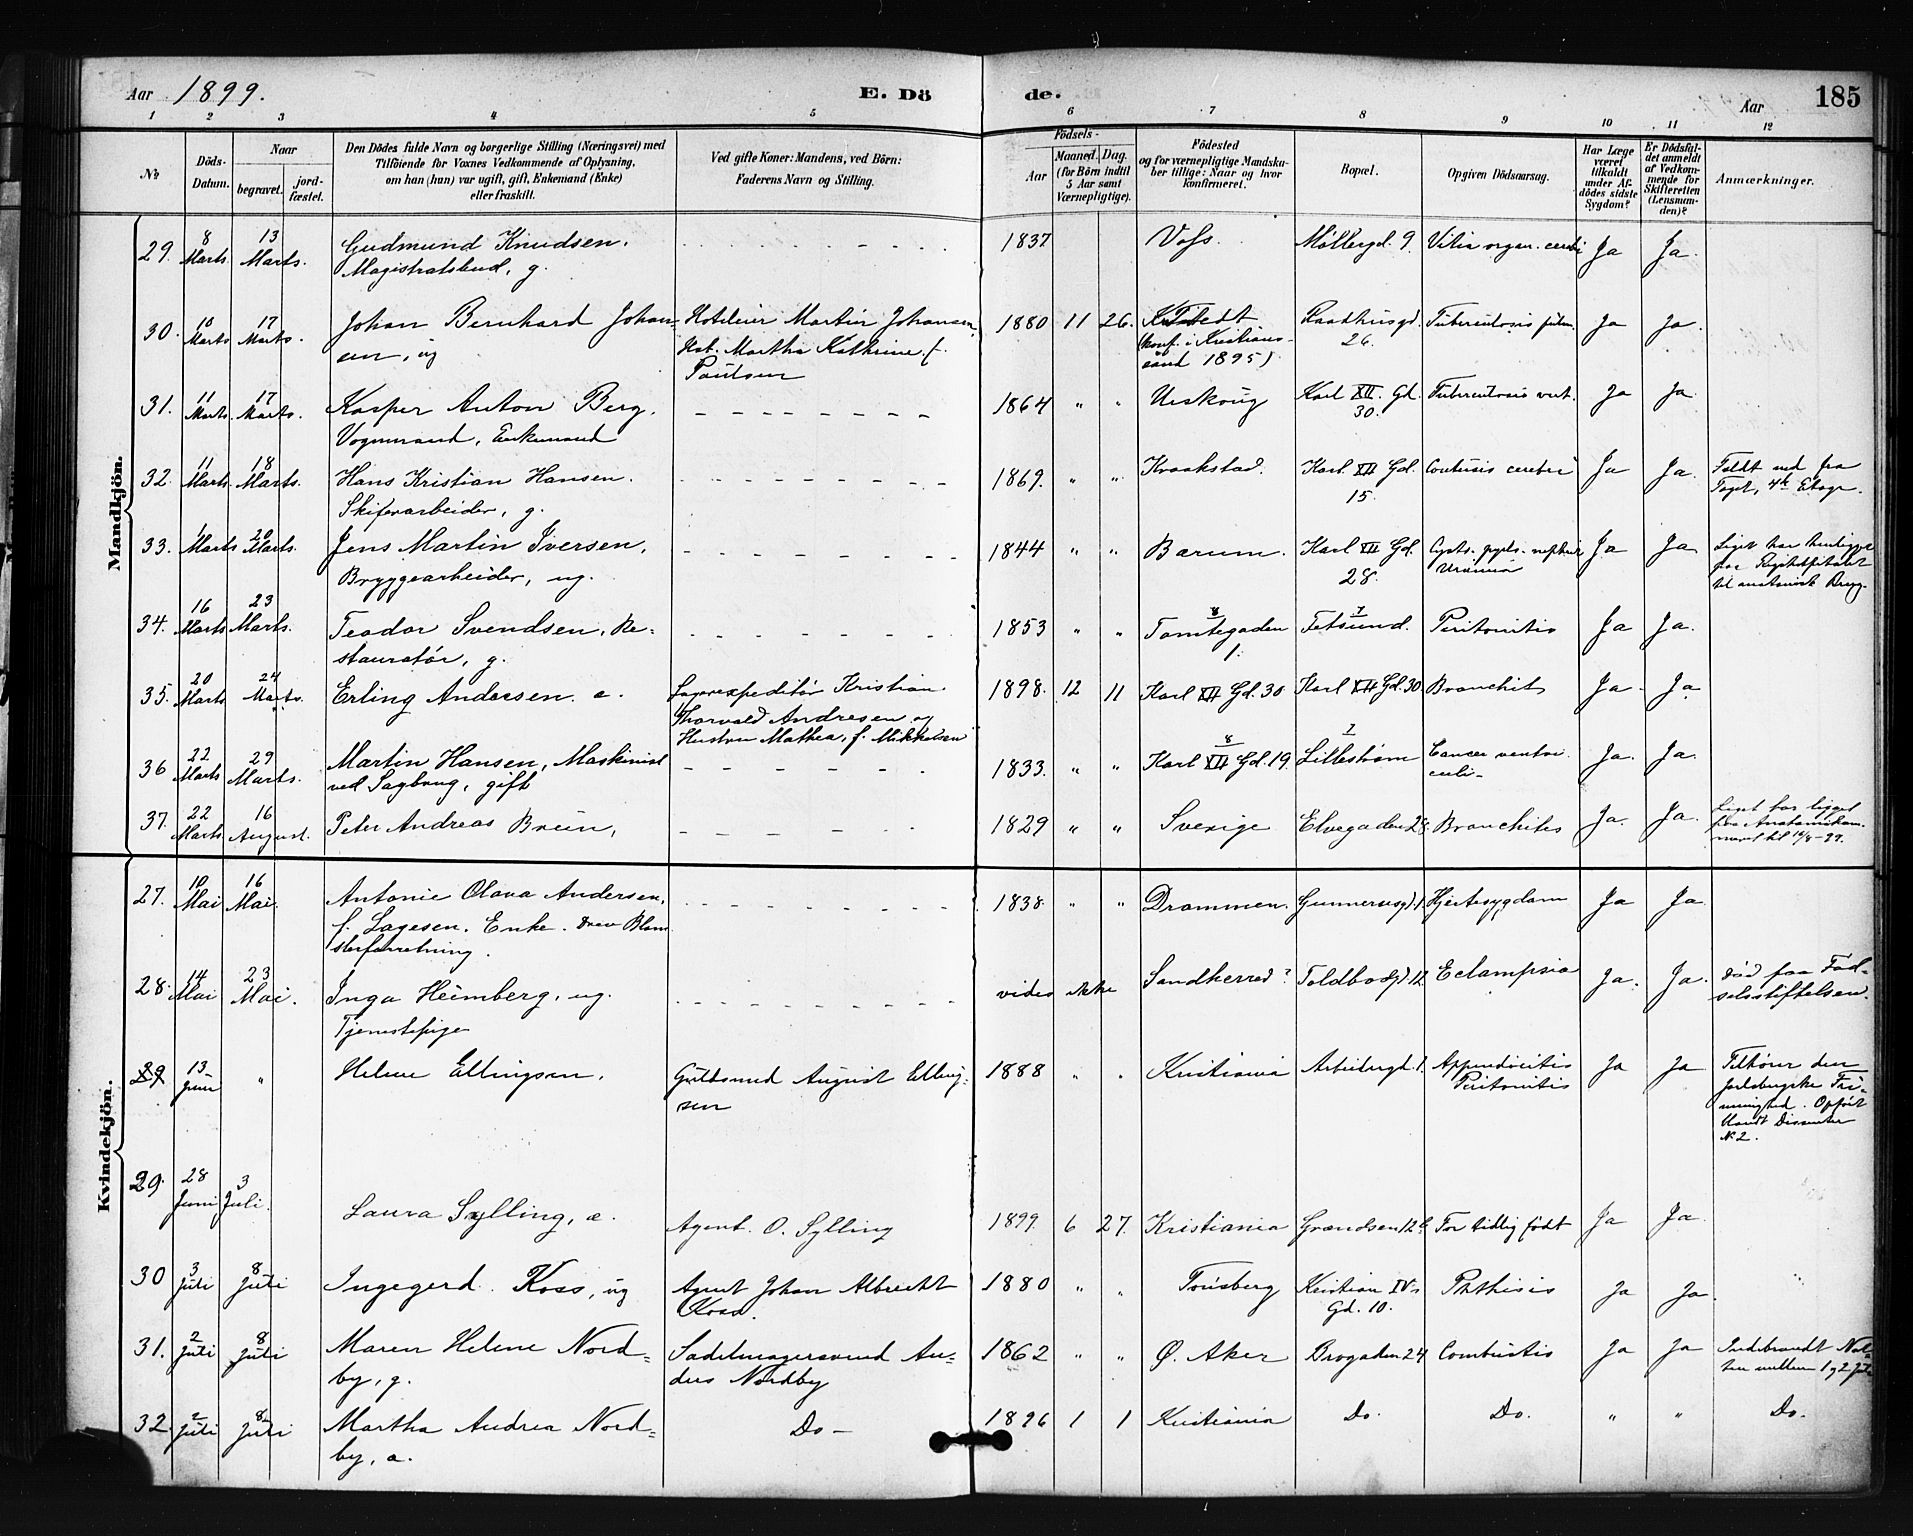 Aar 1899.
E. Dö
de.
Aar
185
1 2 3 4 5 6 7 8 9 10 11 12
№
Döds-Datum.
Naar
begravet.
jord-fæstet.
Den Dödes fulde Navn og borgerlige Stilling (Næringsvei) med
Tilföiende for Voxnes Vedkommende af Oplysning,
om han (hun) var ugift, gift, Enkemand (Enke)
eller fraskilt.
Ved gifte Koner: Mandens, ved Börn:
Faderens Navn og Stilling.
Födsels-
Aar
Maaned. Dag.
(for Börn indtil
5 Aar samt
Værnepligtige).
Födested
og for værnepligtige Mandska-
ber tillige: Naar og hvor
konfirmeret.
Bopæl.
Opgiven Dödsaarsag.
Har Læge
været
tilkaldt
under Af-
dödes sidste
Sygdom?
Er Dödsfal-
det anmeldt
af Vedkom-
mende for
Skifteretten
(Lensman-
den)?
Anmærkninger.
Mandkjön.
29. 8 Marts. 13 Marts. Gudmund Knudsen. 1837 Voss. Møllergd. 9. Vitia organ. cerebri Ja Ja.
Magistratsbud, g.
30. 10 Marts 17 Marts. Johan Bernhard Johan- Hoteleier Martin Johansen, 1880 11 26. Raadhusgd. Tuberculosis pulm. Ja Ja.
sen, ug Kat. Martha Kathrine f. (konf. i Kristians- 26.
Paulsen sand 1895)
31. 11 Marts. 17 Marts. Kasper Anton Berg. 1864 " " Urskoug Karl XII. Gd. Tuberculosis vert. Ja Ja
Vognmand, Enkemand 30.
32. 11 Marts. 18 Marts. Hans Kristian Hansen. 1869. " " Kraakstad. Karl XII Gd. Contusio cerebri Ja Ja. Faldt ned fra
Skiferarbeider, g. 15. Taget, 4de Etage.
33. Marts 20 Marts. Jens Martin Iversen, 1844 " " Barum. Karl XII Gd. Ja Ja Liget har henligget
Bryggearbeider, ug. 28. Uræmia paa Rigshospitalet
til anatomisk Brug.
34. 16 Marts 23 Marts. Teodor Svendsen, Re- 1853 " " 8 Tomtegaden 7 Fetsund. Peritonitis Ja Ja.
stauratør, g. 1.
35. 20 Marts 24 Marts. Erling Andresen. e. Lagerexpeditør Kristian 1898. 12 11 Karl XII Gd. 30 Karl XII Gd. 30 Bronchitis Ja. Ja
Thorvald Andresen og
Hustru Mathea, f. Mikkelsen
36 22 Marts 29 Marts. Martin Hansen, Maskinist 1833. " " 8 Karl XII Gd. 19. 7 Lillestrøm Cancer ventri- Ja. Ja.
ved Sagbrug, gift culi-
37. 22 Marts 16 August. Peter Andreas Breün, 1829 " " Sverige Elvegaden 28. Bronchites Ja. Ja. Liget har ligget
paa Anatomikam-
meret til 16/8-99.
Kvindekjön.
27. 10 Mai 16 Mai. Antonie Olava Andersen, 1838. " " Drammen. Gunnerusgd. 1. Hjertesygdom Ja Ja.
f. Lagesen. Enke. Drev Blom
sterforretning.
28. 14 Mai 23 Mai. Inga Heimberg, ug. vides ikke Sandherred? Toldbodgd. 12. Eclampsia Ja. Ja. Død paa Fød-
Tjenestepige selsstiftelsen.
29 13 Juni " Helene Ellingsen. Guldsmed August Elling- 1888 " " Kristiania Arbeidergd. 1. Appendicitis Ja Ja Tilhører den
sen Peritonitis Jarlsbergske Fri-
menighed. Opført
blandt Dissenter
№ 2.
29. 28 Juni 3 Juli. Laura Sylling, e. Agent O. Sylling 1899. 6 27. Kristiania Grændsen 12 For tidlig født Ja Ja.
30 3 Juli 8 Juli Ingegerd Koss, ug Agent Johan Albrecht 1880 " " Tønsberg Kristian IV's Phthisis Ja Ja.
Koss. Gd. 10.
31. 2 Juli 8 Juli Maren Helene Nord- Sadelmagersvend An- 1862 " " Ø. Aker Brogaden 24 Combustio Ja Ja Indebrændt Nat-
by, g. ders Nordby ten mellem 1 og 2 Juli
32. 2 Juli 8 Juli Martha Andrea Nord- Do - 1896 1 1 Kristiania Do. Do. " " Do.
by, e.